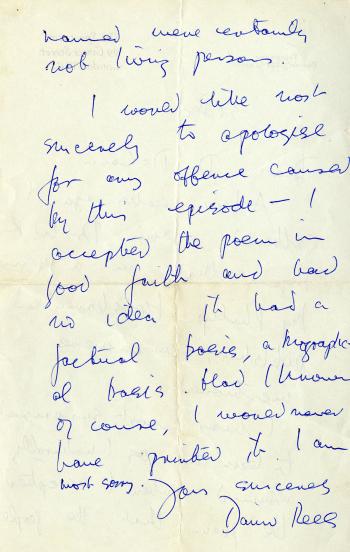 named were certainly
not living persons.
I would like most
sincerely to apologise
for any offence caused
by this episode – I
accepted the poem in
good faith and had
no idea it had a
factual basis, a biographic-
al basis. Had I known
of course, I would never
have printed it. I am
most sorry. Yours sincerely
Rees